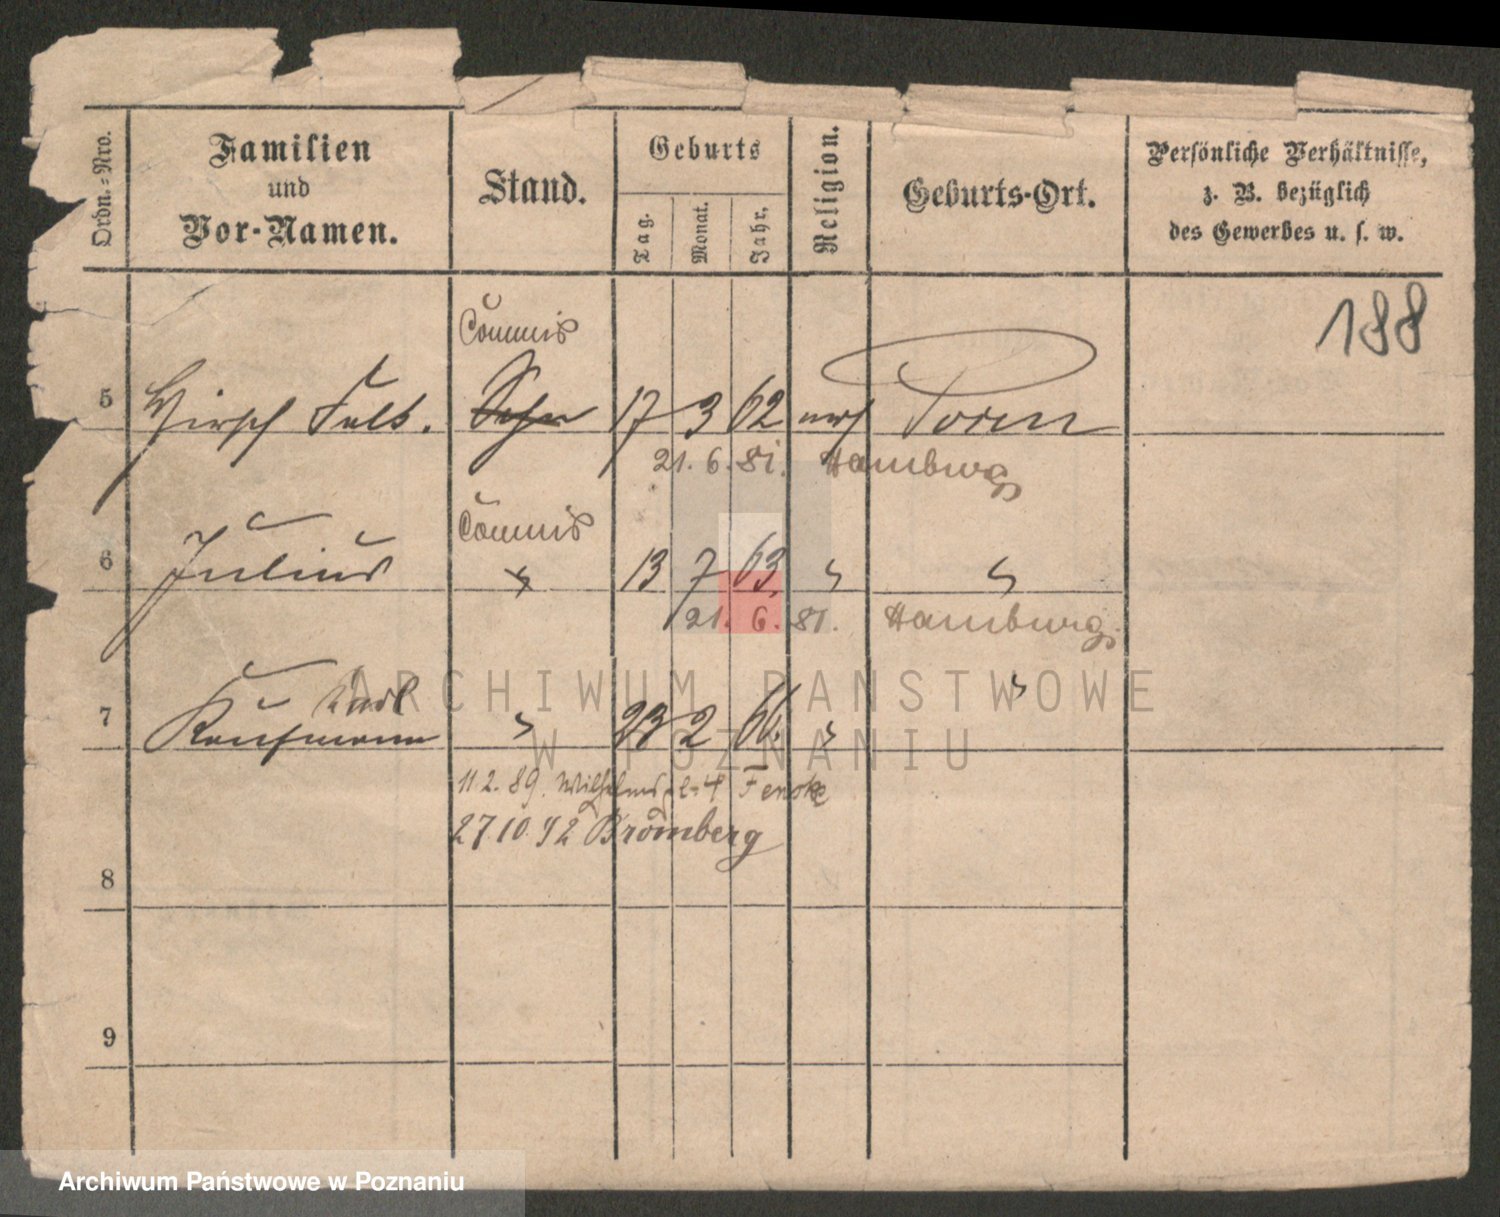 Ordn.-Nro.
Familien und Vor-Namen.
Stand.
Geburts
Tag.
Monat.
Jahr.
Religion.
Geburts-Ort.
Persönliche Verhältnisse, z. B. bezüglich des Gewerbes u. s. w.
188
Commis
5 Hirsch 17 3 62 Posen
21. 6. 81. Hamburg
Commis
6 Julius 13 7 63.
21. 6. 81. Hamburg.
Karl
7 Kaufmann 23 2 66.
11.2.89. Fenske
27 10 92 Bromberg
8
9
ARCHIWUM PAŃSTWOWE
W POZNANIU
Archiwum Państwowe w Poznaniu